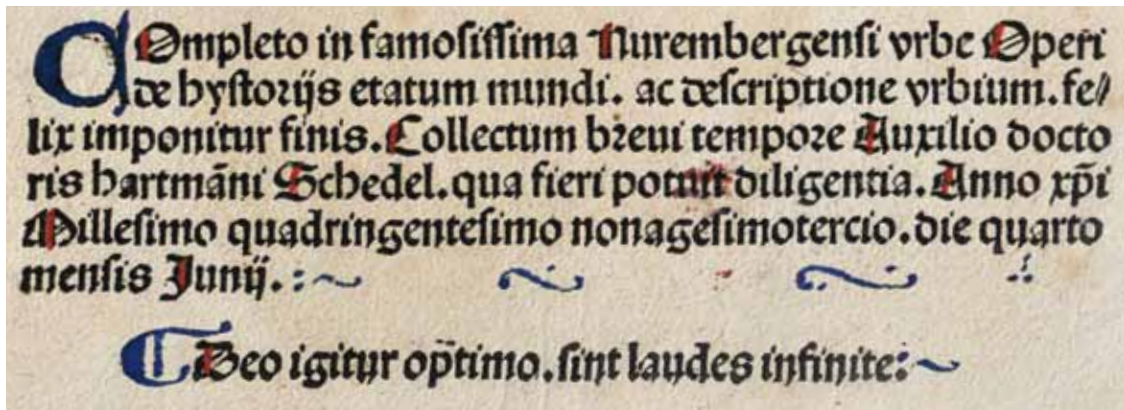 COmpleto in famosissima Nurembergensi vrbe Operi
de hystorijs etatum mundi. ac descriptione vrbium. fe/
lix imponitur finis. Collectum breui tempore Auxilio docto
ris hartmāni Schedel. qua fieri potuit diligentia. Anno xp̄i
Millesimo quadringentesimo nonagesimotercio. die quarto
mensis Junij. :~
Deo igitur op̄timo. sint laudes infinite:~